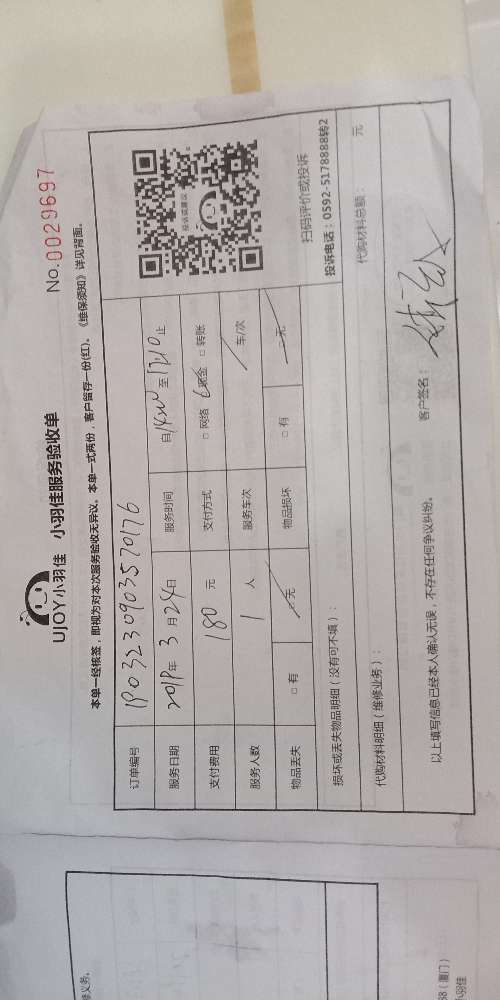 UJOY小羽佳 小羽佳服务验收单 No.0029697
本单一经核签，即视为对本次服务验收无异议。本单一式两份，客户留存一份(红)。《维保须知》详见背面。
订单编号 1903230903570176
服务日期 2019年 3 月 24日 服务时间 自 至 止
支付费用 180 元 支付方式 □ 网络 现金 □ 转账
服务人数 1 人 服务车次 车/次
物品丢失 □ 有 无 物品损坏 □ 有 无
投诉或建议
扫码评价或投诉
投诉电话：0592-5178888转2
损坏或丢失物品明细（没有可不填）：
代购材料明细（维修业务）： 代购材料总额： 元
以上填写信息已经本人确认无误，不存在任何争议纠纷。 客户签名：
修义务。
（厦门）
小羽佳